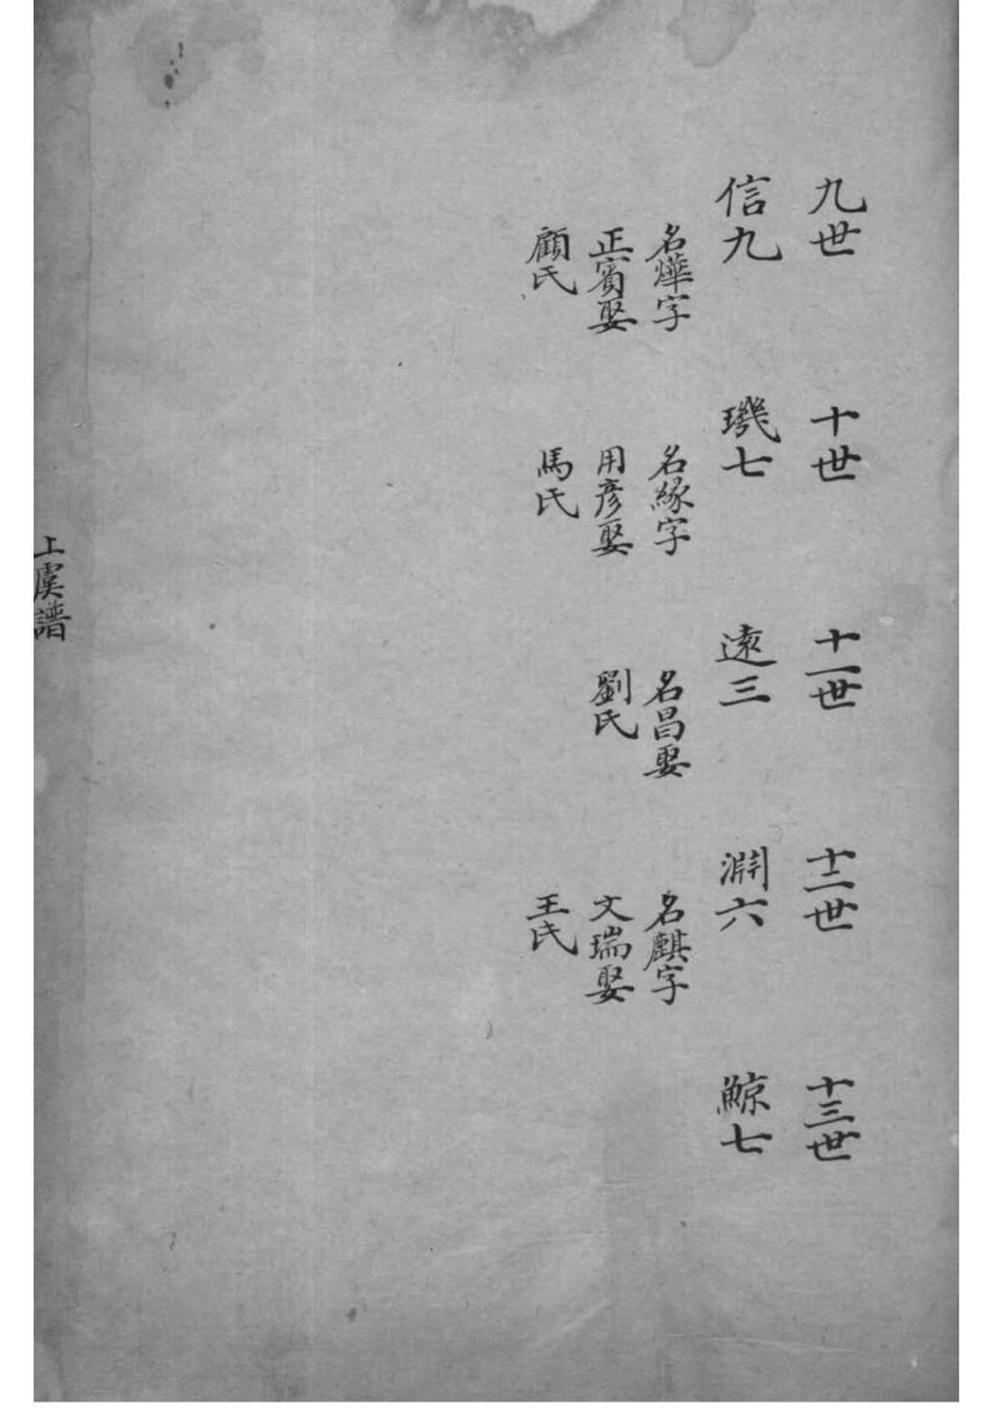 九世
十世
十一世
十二世
十三世
信九
璣七
遠三
淵六
鯨七
名燁字
正賓娶
顧氏
名緣字
用彥娶
馬氏
名昌娶
劉氏
名麒字
文瑞娶
王氏
上虞譜